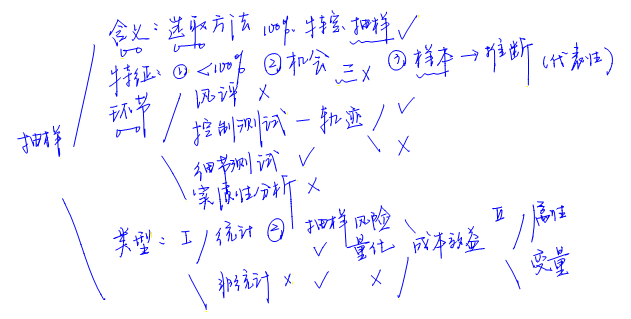 含义：选取方法 100% 特定 抽样 ✓
特征：① <100% ② 机会 三 × ③ 样本 → 推断（代表性）
环节 风评 ×
抽样 控制测试 — 轨迹 ✓
×
细节测试 ✓
实质性分析 ×
类型：Ⅰ 统计 ② 抽样风险 Ⅱ 属性
✓ 量化 成本效益
非统计 × ✓ × 变量